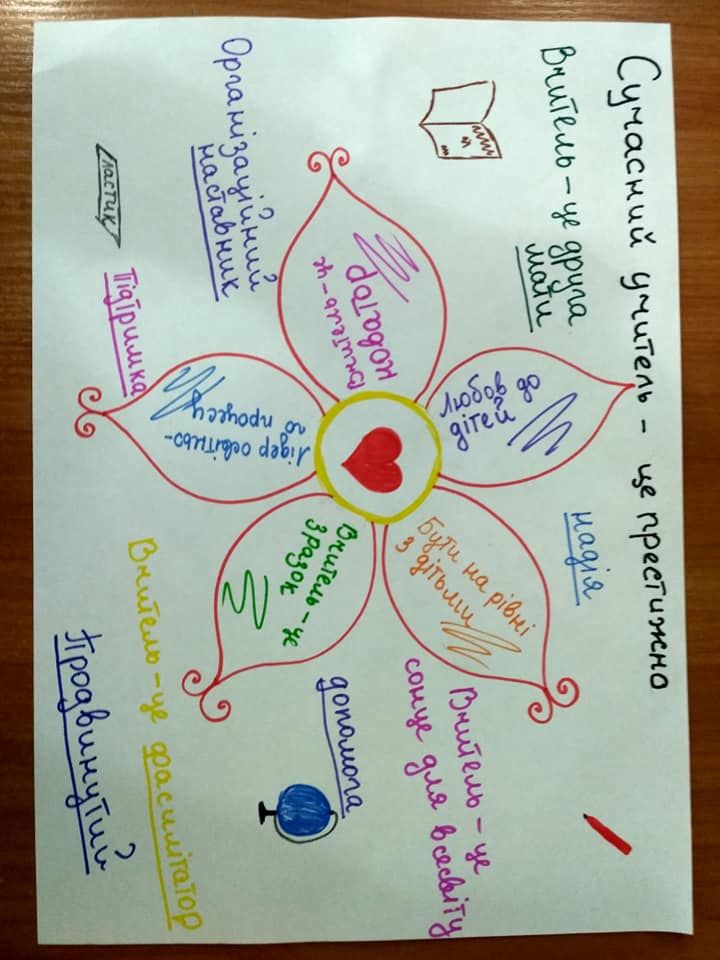 Сучасний учитель - це престижно
Вчитель - це друга
мати
надія
Любов до
дітей
Бути на рівні
з дітьми
Вчитель - це
сонце для всесвіту
Вчитель - це
новатор
Вчитель - це
зразок
допомога
Організаційний
наставник
Лідер освітньо-
го процесу
Підтримка
Ластик
Вчитель - це фасилітатор
Продвинутий